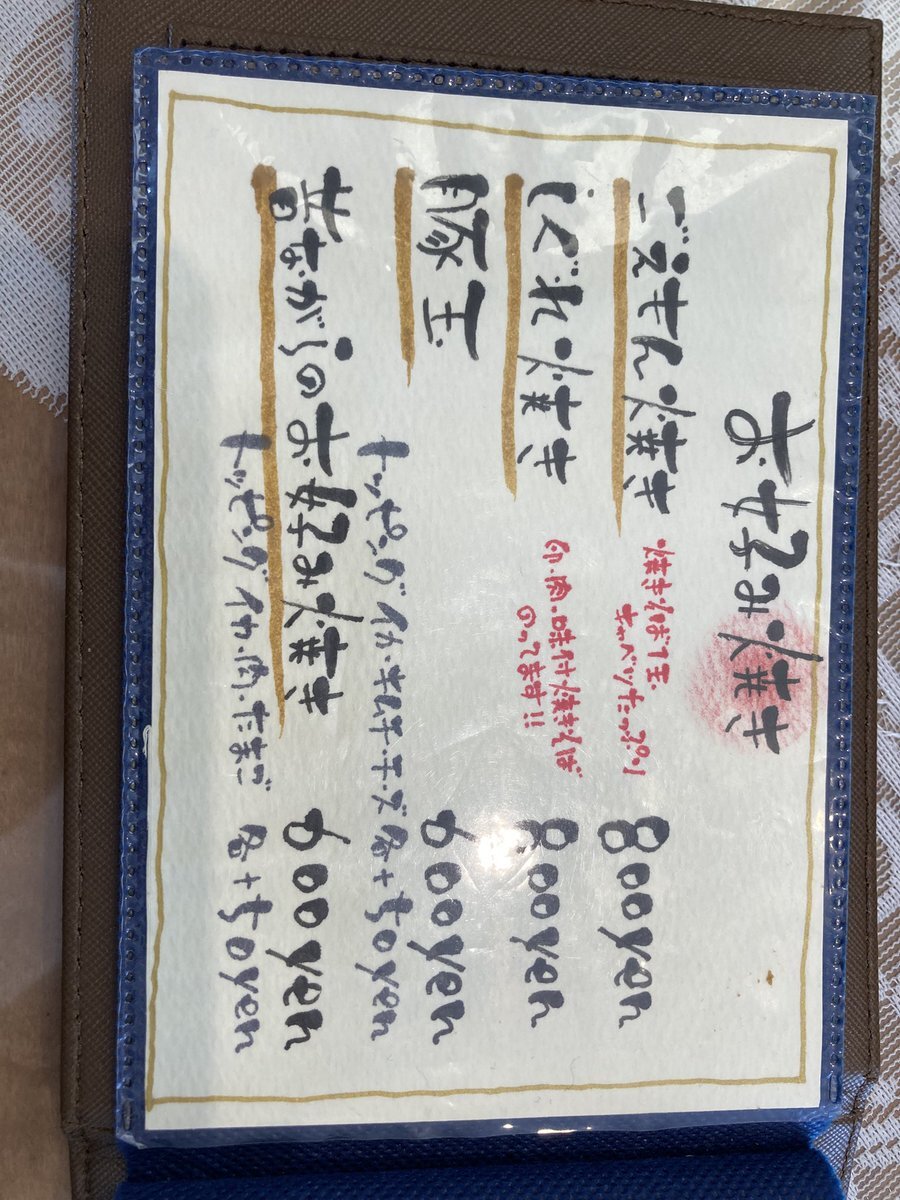 お好み焼き
ごえもん焼き 焼きそば1玉 キャベツたっぷり 800yen
しぐれ焼き 卵、肉、味付焼きそば のってます!! 800yen
豚玉 600yen
トッピング イカ・キムチ・チーズ 各+50yen
昔ながらのお好み焼き 600yen
トッピング イカ・肉・たまご 各+50yen